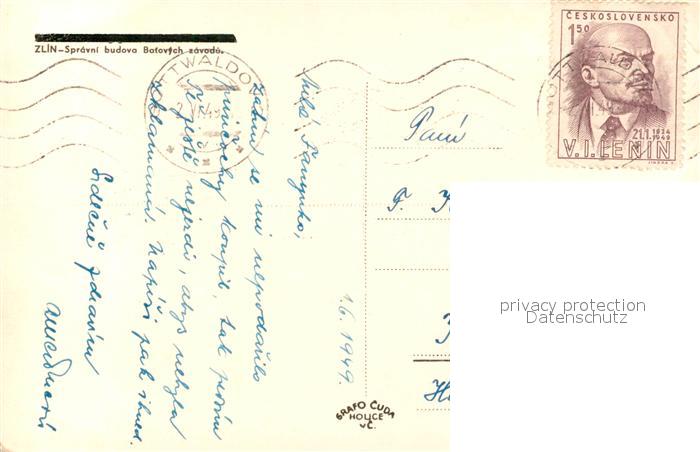 ZLÍN—Správní budova Baťových závodů.
GOTTWALDOV
ČESKOSLOVENSKO
1 50
21.1. 1924
1949
V. I. LENIN
Milá Fanynko,
zatím se mi nepodařilo
punčochy koupit, tak prosím
Tě ještě nejezdi, abys nebyla
zklamaná. Napíši pak ihned.
Srdečně zdraví
1.6.1949.
Paní
F.
GRAFO ČUDA
HOLICE
v Č.
privacy protection
Datenschutz